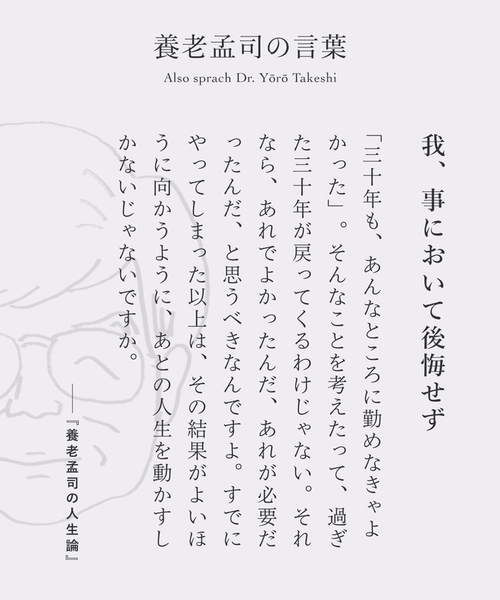 養老孟司の言葉
Also sprach Dr. Yōrō Takeshi
我、事において後悔せず
「三十年も、あんなところに勤めなきゃよ
かった」。そんなことを考えたって、過ぎ
た三十年が戻ってくるわけじゃない。それ
なら、あれでよかったんだ、あれが必要だ
ったんだ、と思うべきなんですよ。すでに
やってしまった以上は、その結果がよいほ
うに向かうように、あとの人生を動かすし
かないじゃないですか。
──『養老孟司の人生論』